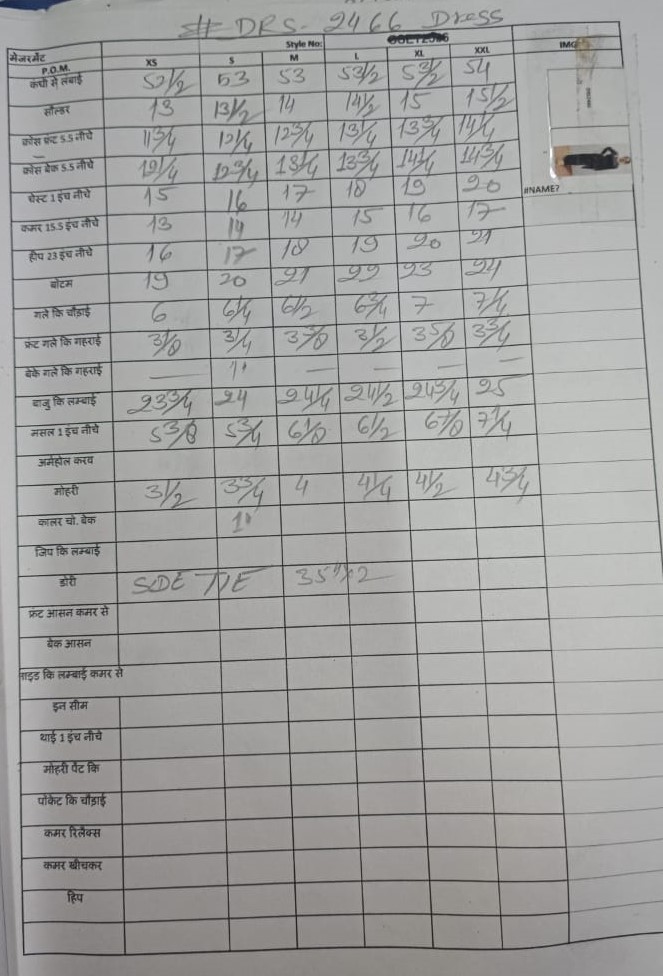 # DRS- 2466 Dress
मेजरमेंट Style No: IMG
P.O.M. XS S M L XL XXL
कंधी से लंबाई 52 1/2 53 53 53 1/2 53 1/2 54
सोल्डर 13 13 1/2 14 14 1/2 15 15 1/2
क्रोस फ्रंट 5.5 नीचे 11 3/4 12 1/4 12 3/4 13 1/4 13 3/4 14 1/4
क्रोस बेक 5.5 नीचे 12 1/4 12 3/4 13 1/4 13 3/4 14 1/4 14 3/4
चेस्ट 1 इंच नीचे 15 16 17 18 19 20 #NAME?
कमर 15.5 इंच नीचे 13 14 14 15 16 17
हीप 23 इंच नीचे 16 17 18 19 20 21
बोटम 19 20 21 22 23 24
गले कि चौड़ाई 6 6 1/4 6 1/2 6 3/4 7 7 1/4
फ्रंट गले कि गहराई 3 1/8 3 1/4 3 3/8 3 1/2 3 5/8 3 3/4
बेके गले कि गहराई — 1" — — — —
बाजु कि लम्बाई 23 3/4 24 24 1/4 24 1/2 24 3/4 25
मसल 1 इंच नीचे 5 3/8 5 3/4 6 1/8 6 1/2 6 7/8 7 1/4
अर्महोल करव
मोहरी 3 1/2 3 3/4 4 4 1/4 4 1/2 4 3/4
कालर चो. बेक 1"
जिप कि लम्बाई
डोरी SIDE TIE 35"x2
फ्रंट आसन कमर से
बेक आसन
साइड कि लम्बाई कमर से
इन सीम
थाई 1 इंच नीचे
मोहरी पेंट कि
पोकेट कि चौड़ाई
कमर रिलैक्स
कमर खीचकर
हिप